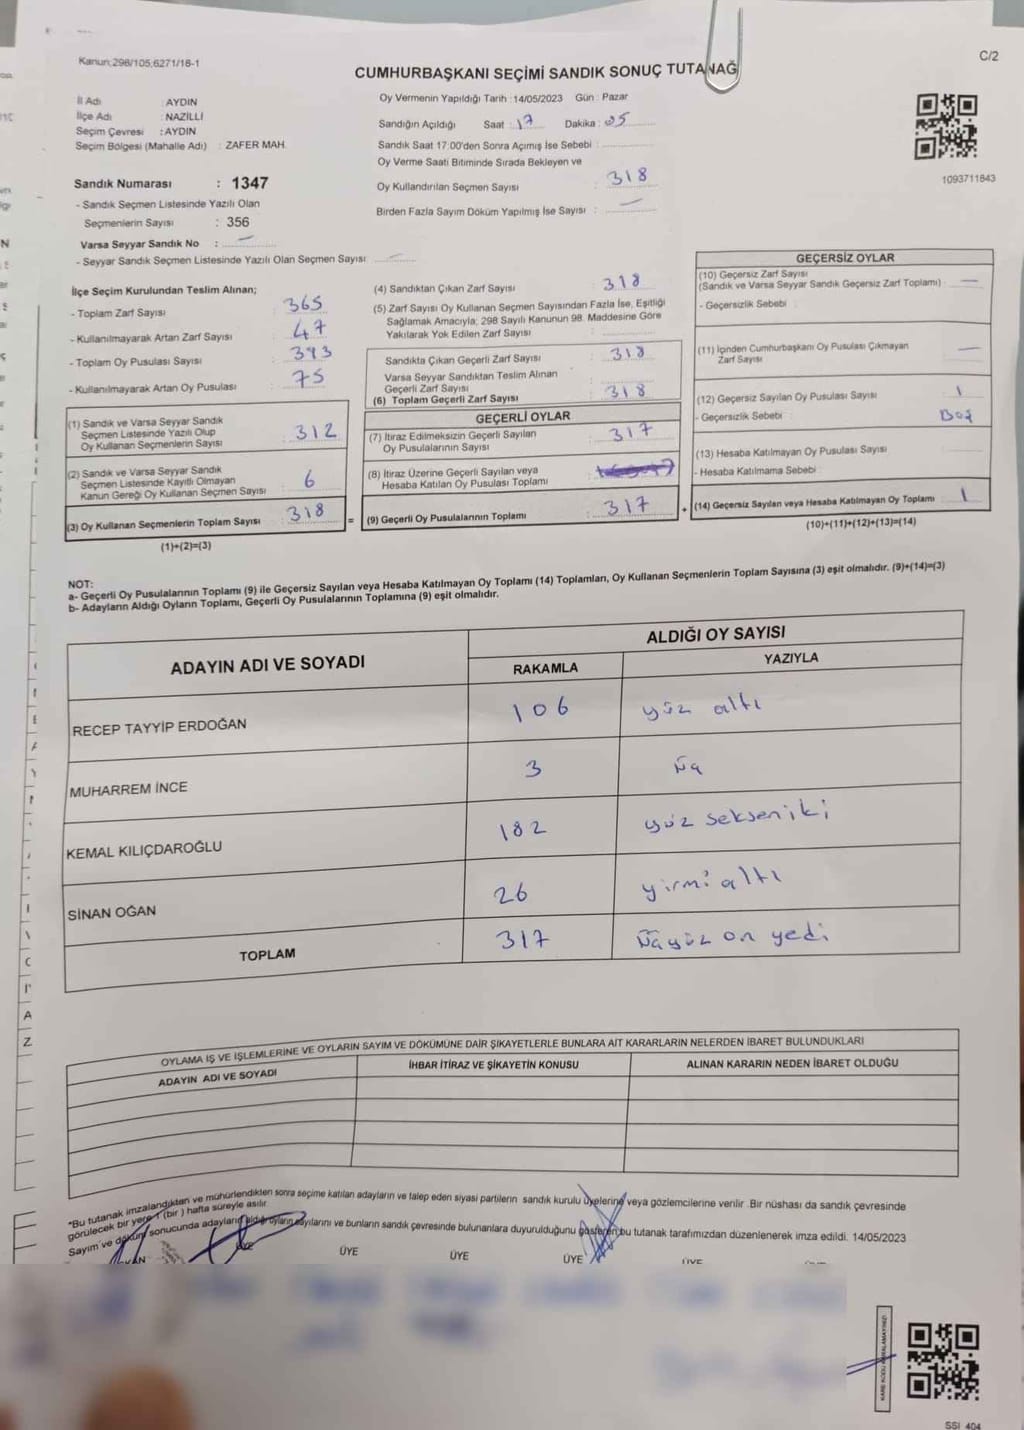 Kanun:298/105;6271/18-1
C/2
CUMHURBAŞKANI SEÇİMİ SANDIK SONUÇ TUTANAĞI
İl Adı : AYDIN
İlçe Adı : NAZİLLİ
Seçim Çevresi : AYDIN
Seçim Bölgesi (Mahalle Adı) : ZAFER MAH.
Sandık Numarası : 1347
- Sandık Seçmen Listesinde Yazılı Olan
Seçmenlerin Sayısı : 356
Varsa Seyyar Sandık No : —
- Seyyar Sandık Seçmen Listesinde Yazılı Olan Seçmen Sayısı: —
Oy Vermenin Yapıldığı Tarih : 14/05/2023 Gün : Pazar
Sandığın Açıldığı Saat : 17 Dakika : 05
Sandık Saat 17:00'den Sonra Açımış İse Sebebi :
Oy Verme Saati Bitiminde Sırada Bekleyen ve
Oy Kullandırılan Seçmen Sayısı : 318
Birden Fazla Sayım Döküm Yapılmış İse Sayısı : —
1093711843
İlçe Seçim Kurulundan Teslim Alınan;
- Toplam Zarf Sayısı : 365
- Kullanılmayarak Artan Zarf Sayısı : 47
- Toplam Oy Pusulası Sayısı : 393
- Kullanılmayarak Artan Oy Pusulası : 75
(1) Sandık ve Varsa Seyyar Sandık
Seçmen Listesinde Yazılı Olup
Oy Kullanan Seçmenlerin Sayısı : 312
(2) Sandık ve Varsa Seyyar Sandık
Seçmen Listesinde Kayıtlı Olmayan
Kanun Gereği Oy Kullanan Seçmen Sayısı : 6
(3) Oy Kullanan Seçmenlerin Toplam Sayısı : 318
(1)+(2)=(3)
=
(4) Sandıktan Çıkan Zarf Sayısı : 318
(5) Zarf Sayısı Oy Kullanan Seçmen Sayısından Fazla İse, Eşitliği
Sağlamak Amacıyla; 298 Sayılı Kanunun 98. Maddesine Göre
Yakılarak Yok Edilen Zarf Sayısı :
Sandıkta Çıkan Geçerli Zarf Sayısı : 318
Varsa Seyyar Sandıktan Teslim Alınan
Geçerli Zarf Sayısı :
(6) Toplam Geçerli Zarf Sayısı : 318
GEÇERLİ OYLAR
(7) İtiraz Edilmeksizin Geçerli Sayılan
Oy Pusulasının Sayısı : 317
(8) İtiraz Üzerine Geçerli Sayılan veya
Hesaba Katılan Oy Pusulası Toplamı :
(9) Geçerli Oy Pusulalarının Toplamı : 317
+
GEÇERSİZ OYLAR
(10) Geçersiz Zarf Sayısı
(Sandık ve Varsa Seyyar Sandık Geçersiz Zarf Toplamı) : —
- Geçersizlik Sebebi :
(11) İçinden Cumhurbaşkanı Oy Pusulası Çıkmayan
Zarf Sayısı : —
(12) Geçersiz Sayılan Oy Pusulası Sayısı : 1
- Geçersizlik Sebebi : Boş
(13) Hesaba Katılmayan Oy Pusulası Sayısı :
- Hesaba Katılmama Sebebi :
(14) Geçersiz Sayılan veya Hesaba Katılmayan Oy Toplamı : 1
(10)+(11)+(12)+(13)=(14)
NOT:
a- Geçerli Oy Pusulalarının Toplamı (9) ile Geçersiz Sayılan veya Hesaba Katılmayan Oy Toplamı (14) Toplamları, Oy Kullanan Seçmenlerin Toplam Sayısına (3) eşit olmalıdır. (9)+(14)=(3)
b- Adayların Aldığı Oyların Toplamı, Geçerli Oy Pusulalarının Toplamına (9) eşit olmalıdır.
ADAYIN ADI VE SOYADI
ALDIĞI OY SAYISI
RAKAMLA YAZIYLA
RECEP TAYYİP ERDOĞAN 106 yüz altı
MUHARREM İNCE 3 üç
KEMAL KILIÇDAROĞLU 182 yüz sekseniki
SİNAN OĞAN 26 yirmi altı
TOPLAM 317 üçyüz on yedi
OYLAMA İŞ VE İŞLEMLERİNE VE OYLARIN SAYIM VE DÖKÜMÜNE DAİR ŞİKAYETLERLE BUNLARA AİT KARARLARIN NELERDEN İBARET BULUNDUKLARI
ADAYIN ADI VE SOYADI İHBAR İTİRAZ VE ŞİKAYETİN KONUSU ALINAN KARARIN NEDEN İBARET OLDUĞU
*Bu tutanak imzalandıktan ve mühürlendikten sonra seçime katılan adayların ve talep eden siyasi partilerin sandık kurulu üyelerine veya gözlemcilerine verilir. Bir nüshası da sandık çevresinde
görülecek bir yere 1 (bir) hafta süreyle asılır.
Sayım ve döküm sonucunda adayların aldığı oyların sayılarını ve bunların sandık çevresinde bulunanlara duyurulduğunu gösteren bu tutanak tarafımızdan düzenlenerek imza edildi. 14/05/2023
ÜYE ÜYE ÜYE ÜYE ÜYE
SSİ 404